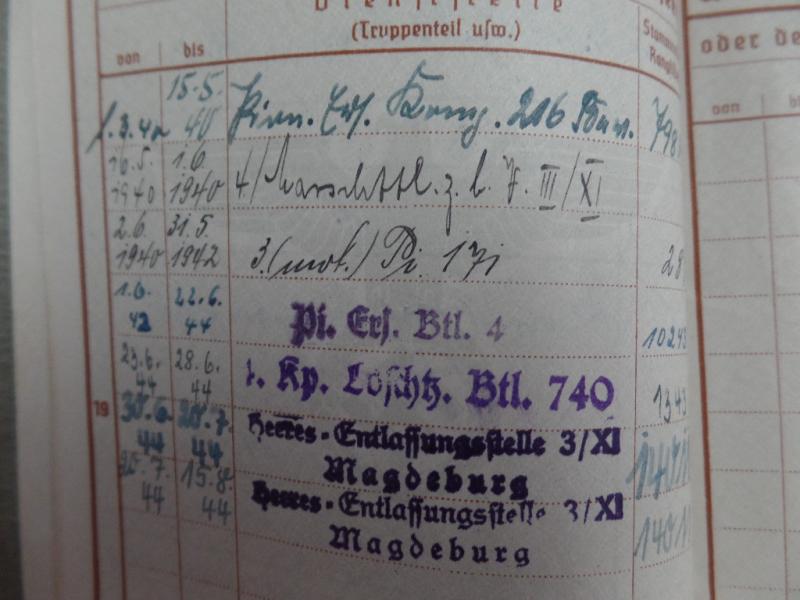 Dienststelle
(Truppenteil usw.)
von bis
oder de
von
1.3.40 15.5. 40 Pion. Ers. Komp. 216 798
16.5. 1940 1.6. 1940 4./Marschbtl. z. b. V. III/XI
2.6. 1940 31.5. 1942 3.(mot.) Pi. 171 28
1.6. 42 22.6. 44 Pi. Ers. Btl. 4 1024
23.6. 44 28.6. 44 Kp. Löschtz. Btl. 740 134
19 44 44 Heeres-Entlassungsstelle 3/XI
Magdeburg
44 15.8. 44 Heeres-Entlassungsstelle 3/XI
Magdeburg